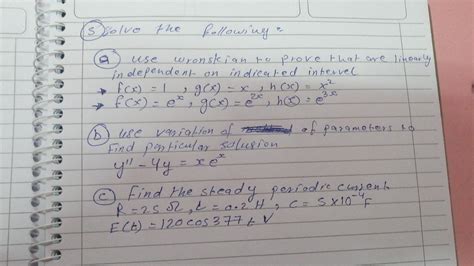 ③ Solve the following:
ⓐ use wronskian to prove that are linearly
independent on indicated interval
→ f(x) = 1 , g(x) = x , h(x) = x²
→ f(x) = eˣ, g(x) = e²ˣ, h(x) = e³ˣ
ⓑ use variation of of parameters to
find particular solution
y'' - 4y = xeˣ
ⓒ find the steady periodic current
R = 25 Ω, L = 0.2 H, C = 5×10⁻⁴ F
E(t) = 120 cos 377 t V